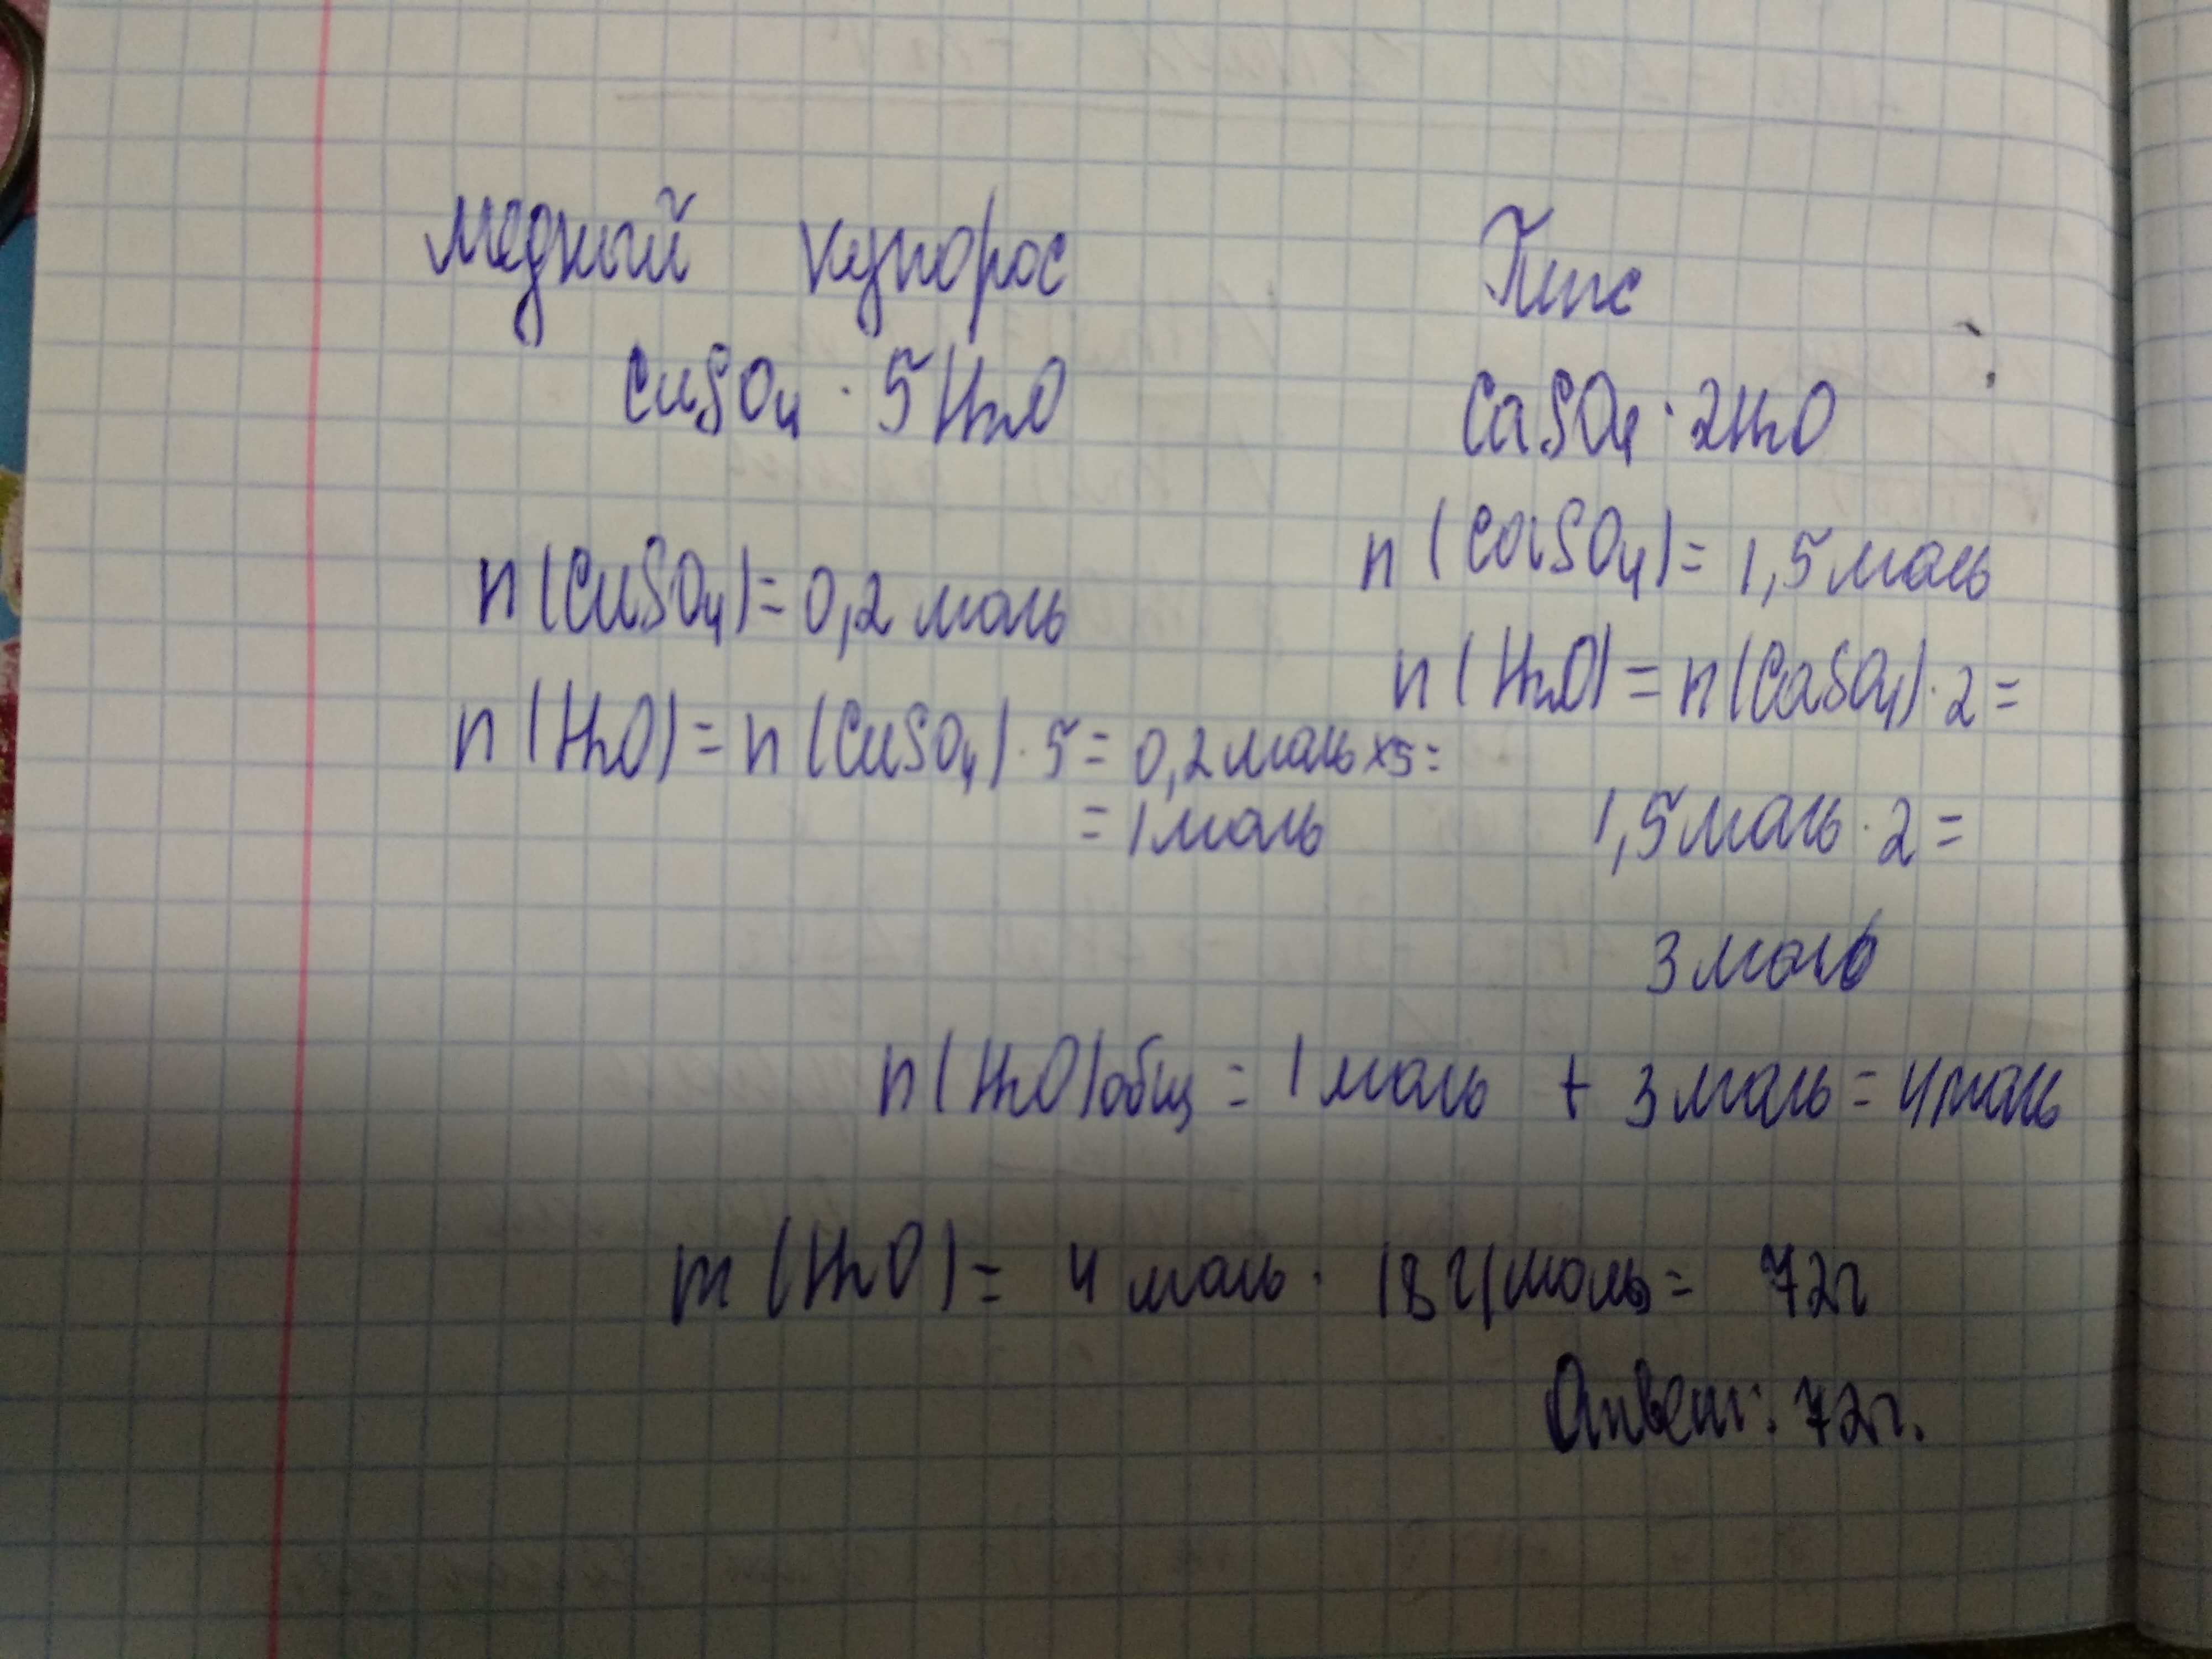 Медный купорос
CuSO4 · 5H2O
n(CuSO4) = 0,2 моль
n(H2O) = n(CuSO4) · 5 = 0,2 моль x5 =
= 1 моль
Гипс
CaSO4 · 2H2O
n(CaSO4) = 1,5 моль
n(H2O) = n(CaSO4) · 2 =
1,5 моль · 2 =
3 моль
n(H2O)общ = 1 моль + 3 моль = 4 моль
m(H2O) = 4 моль · 18 г/моль = 72г
Ответ: 72г.